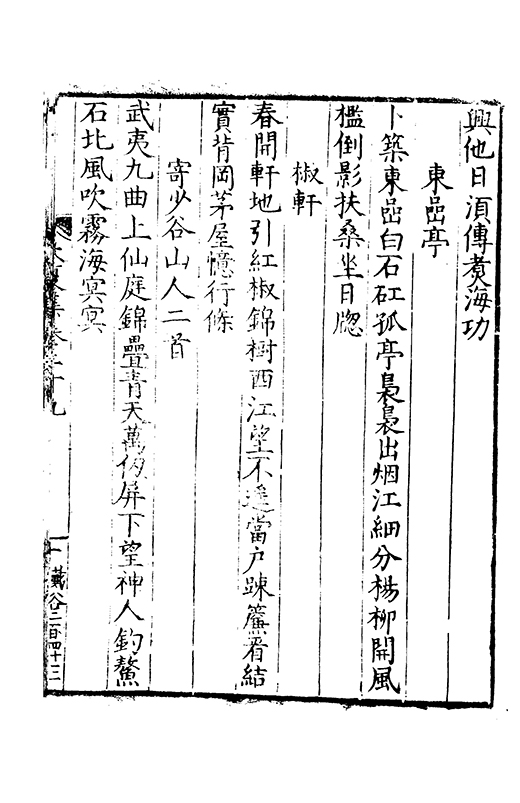 興他日湏傳煑海功
東嵒亭
卜築東嵒白石矼孤亭裊裊出烟江細分楊柳開風
檻倒影扶桑坐日牎
椒軒
春開軒地引紅椒錦樹西江望不遥當户踈簾看結
實背岡茅屋憶行條
寄少谷山人二首
武夷九曲上仙庭錦疊青天萬仭屏下望神人釣鰲
石北風吹霧海㝠㝠
集卷二十九
一 藏谷二百四十三